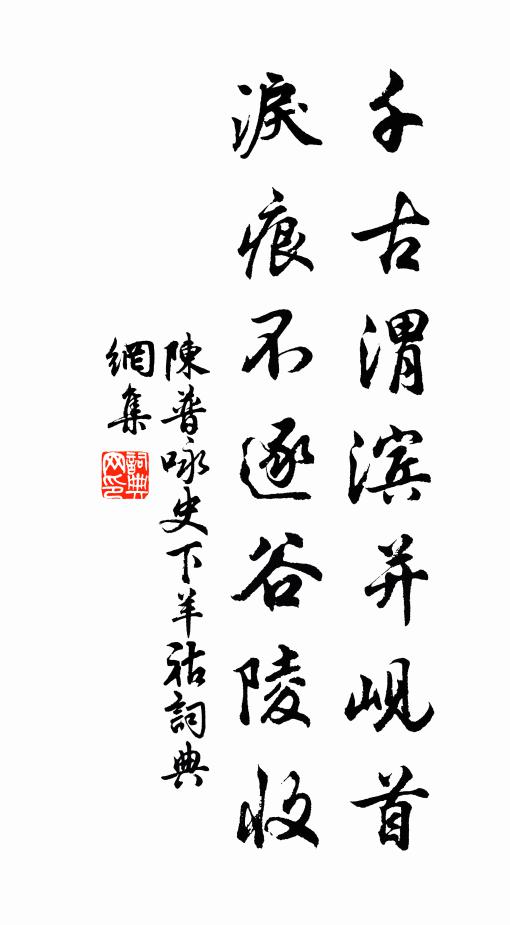 千古渭滨并岘首
淚痕不逐谷陵收
陳普咏史下羊祜詞典
網集
詞典網印